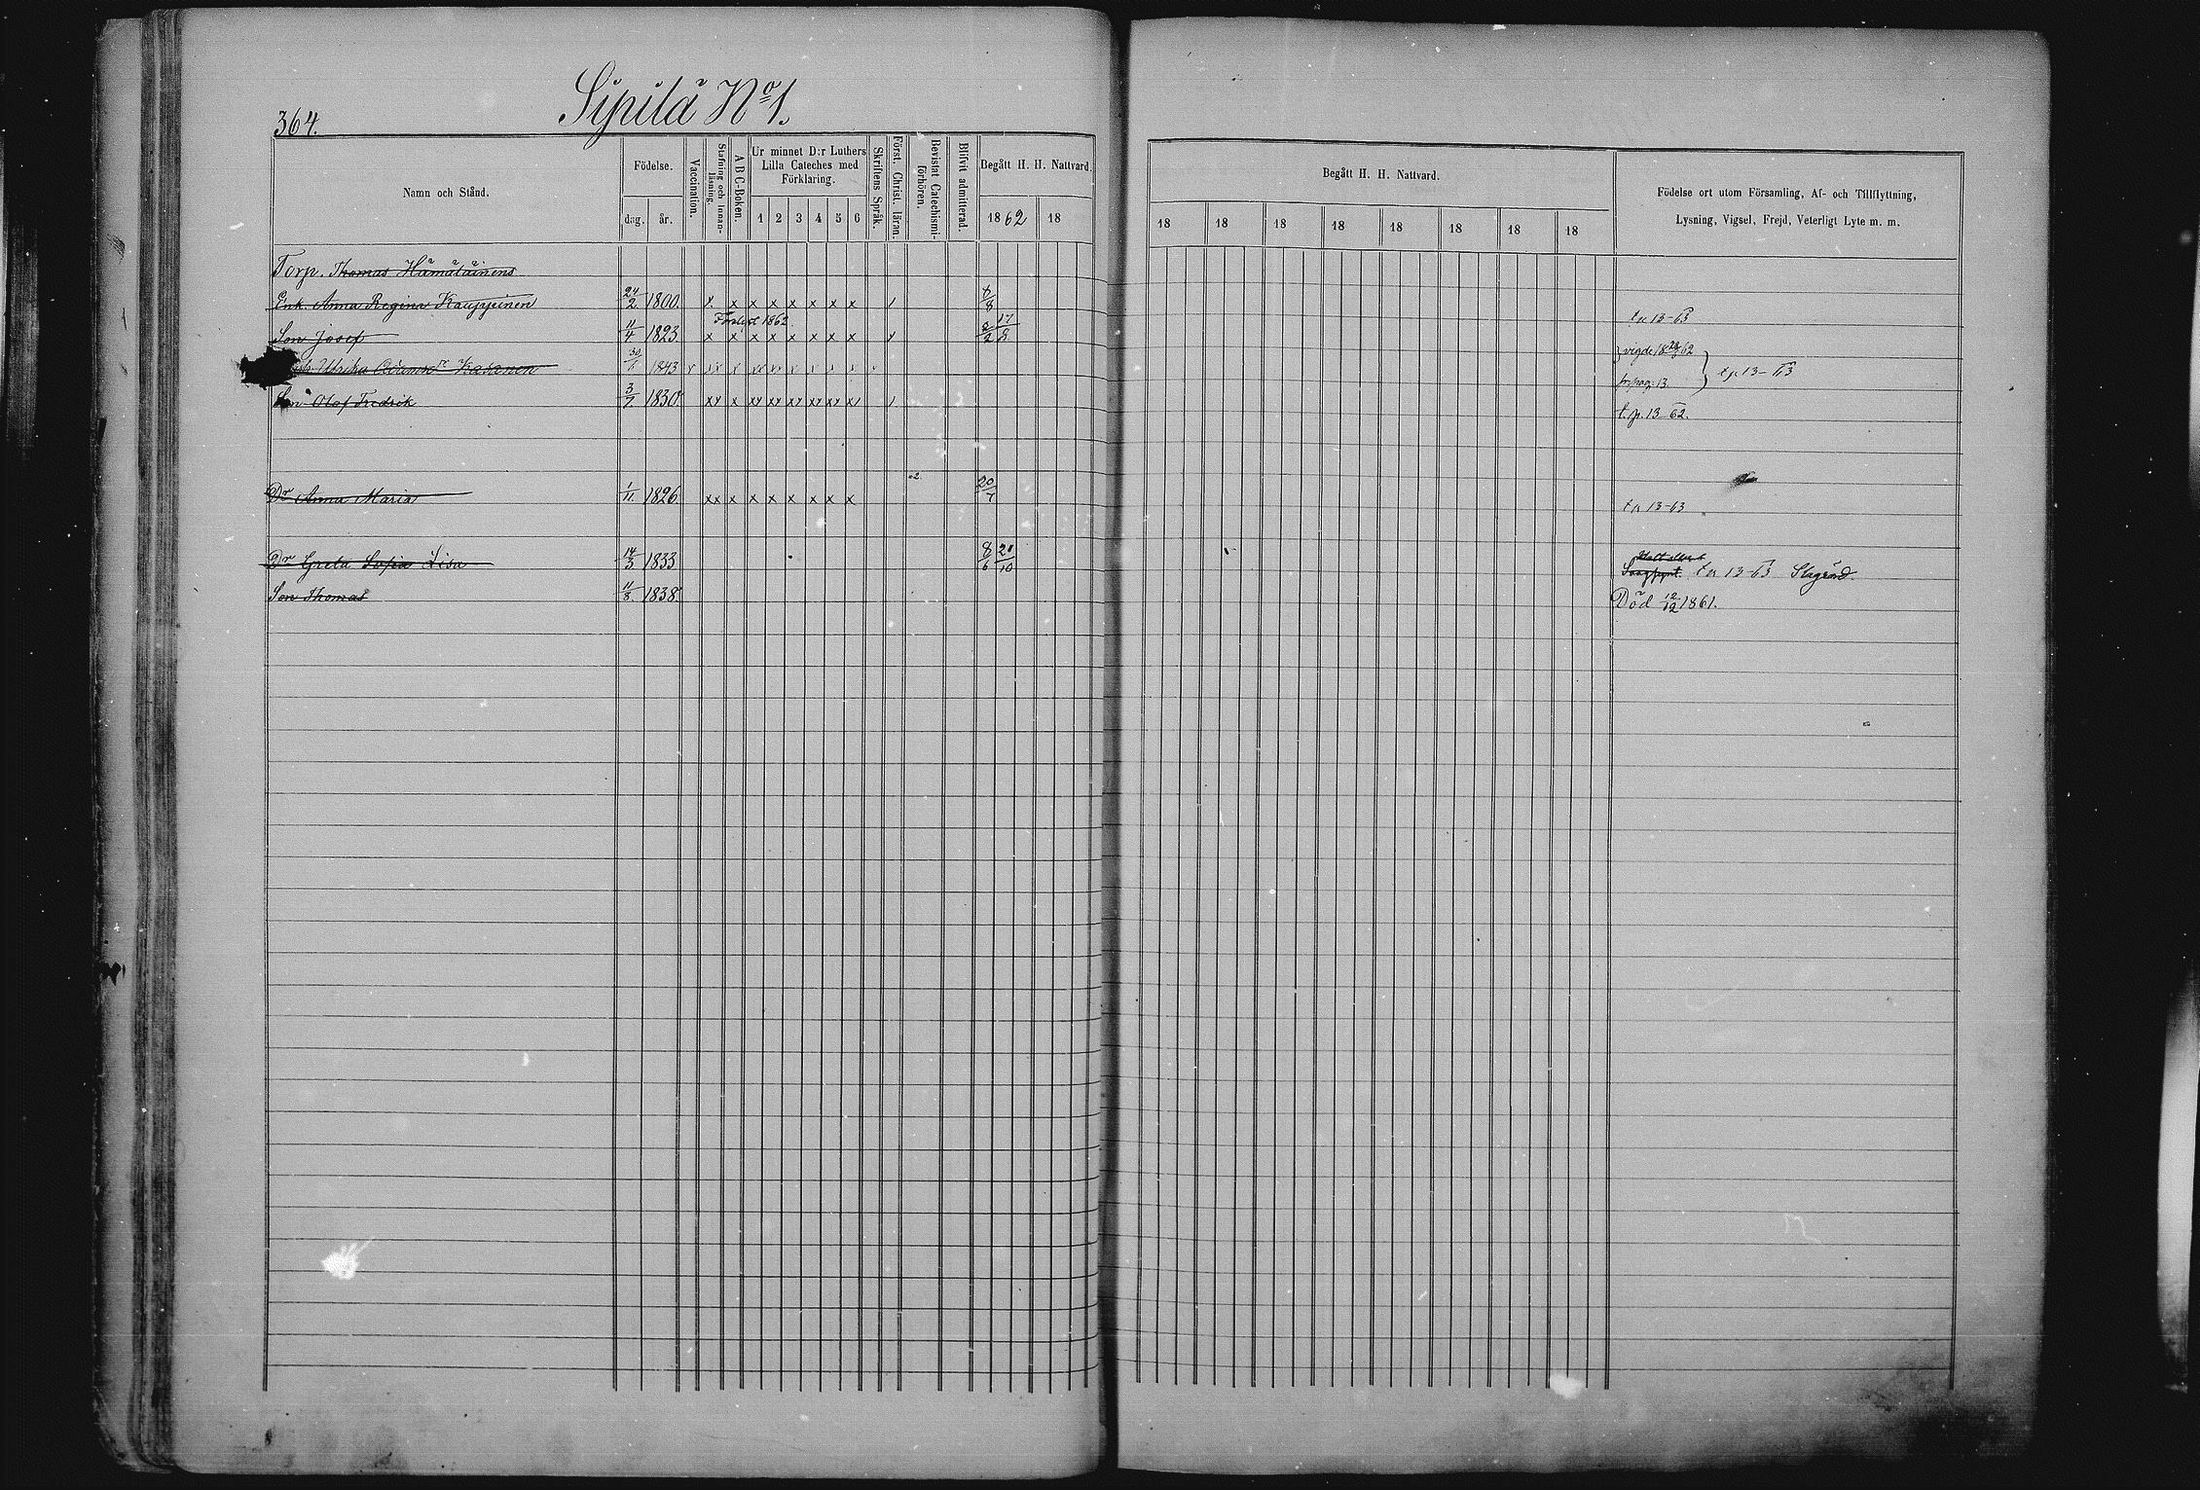 364.
Sipilä No 1.
Namn och Stånd.
Födelse.
dag. år.
Vaccination.
Stafning och Innan-läsning.
A B C-Boken.
Ur minnet D:r Luthers Lilla Cateches med Förklaring.
1 2 3 4 5 6
Skriftens Språk.
Först. Christ. läran.
Bevistat Catechismi-förhören.
Blifvit admitterad.
Begått H. H. Nattvard.
1862 18
Begått H. H. Nattvard.
18 18 18 18 18 18 18 18
Födelse ort utom Församling, Af- och Tillflyttning,
Lysning, Vigsel, Frejd, Veterligt Lyte m. m.
Torp. Thomas Hämäläinens
Enk. Anna Regina Kauppinen 24/2 1800. x x x x x x x x
Förlyst 1862
Son Josef 11/4 1823 x x x x x x x x 17/8
Ulrika Kasanen 30/1 1843 vigde 62
t.p. 13-63
Son Olof Fredrik 3/7 1830 xx x xx xx xx xx xx t.p. 13-62.
Dr Anna Maria 1/11. 1826 xx x x x x x x x 20/7 13-63
Dr Greta Sofia Lisa 14/3 1833 8/6 20/10 13-63
Son Thomas 11/8. 1838. Död 12/12 1861.